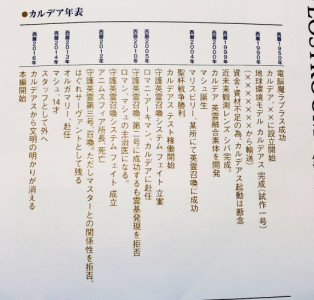 ●カルデア年表
西暦1950年 電脳魔ラプラス成功
カルデア、××に設立開始
西暦1990年 地球環境モデル カルデアス 完成(試作一号)
(××××××××から輸送)
資金・資材不足の為、カルデアス起動は断念
西暦1999年 近未来観測レンズ シバ完成。
西暦2000年 カルデア 英霊融合素体を開発
マシュ誕生
マリスビリー、某所にて英霊召喚に成功
西暦2004年
聖杯戦争勝利
カルデアス テスト稼働開始
守護英霊召喚システム フェイト 立案
西暦2005年 ロマニ・アーキマン、カルデアに赴任
西暦2010年 守護英霊召喚、第二号に成功するも霊基発現を拒否
ロマン、マシュの主治医になる。
守護英霊召喚システム フェイト 成立
西暦2012年 アニムスフィア所長、死亡
守護英霊第三号、召喚。ただしマスターとの関係性を拒否、
はぐれサーヴァントとして残る
西暦2013年 オルガマリー、赴任
マシュ、14才
スタッフとして外へ
西暦2016年 カルデアスから文明の明かりが消える
本編開始